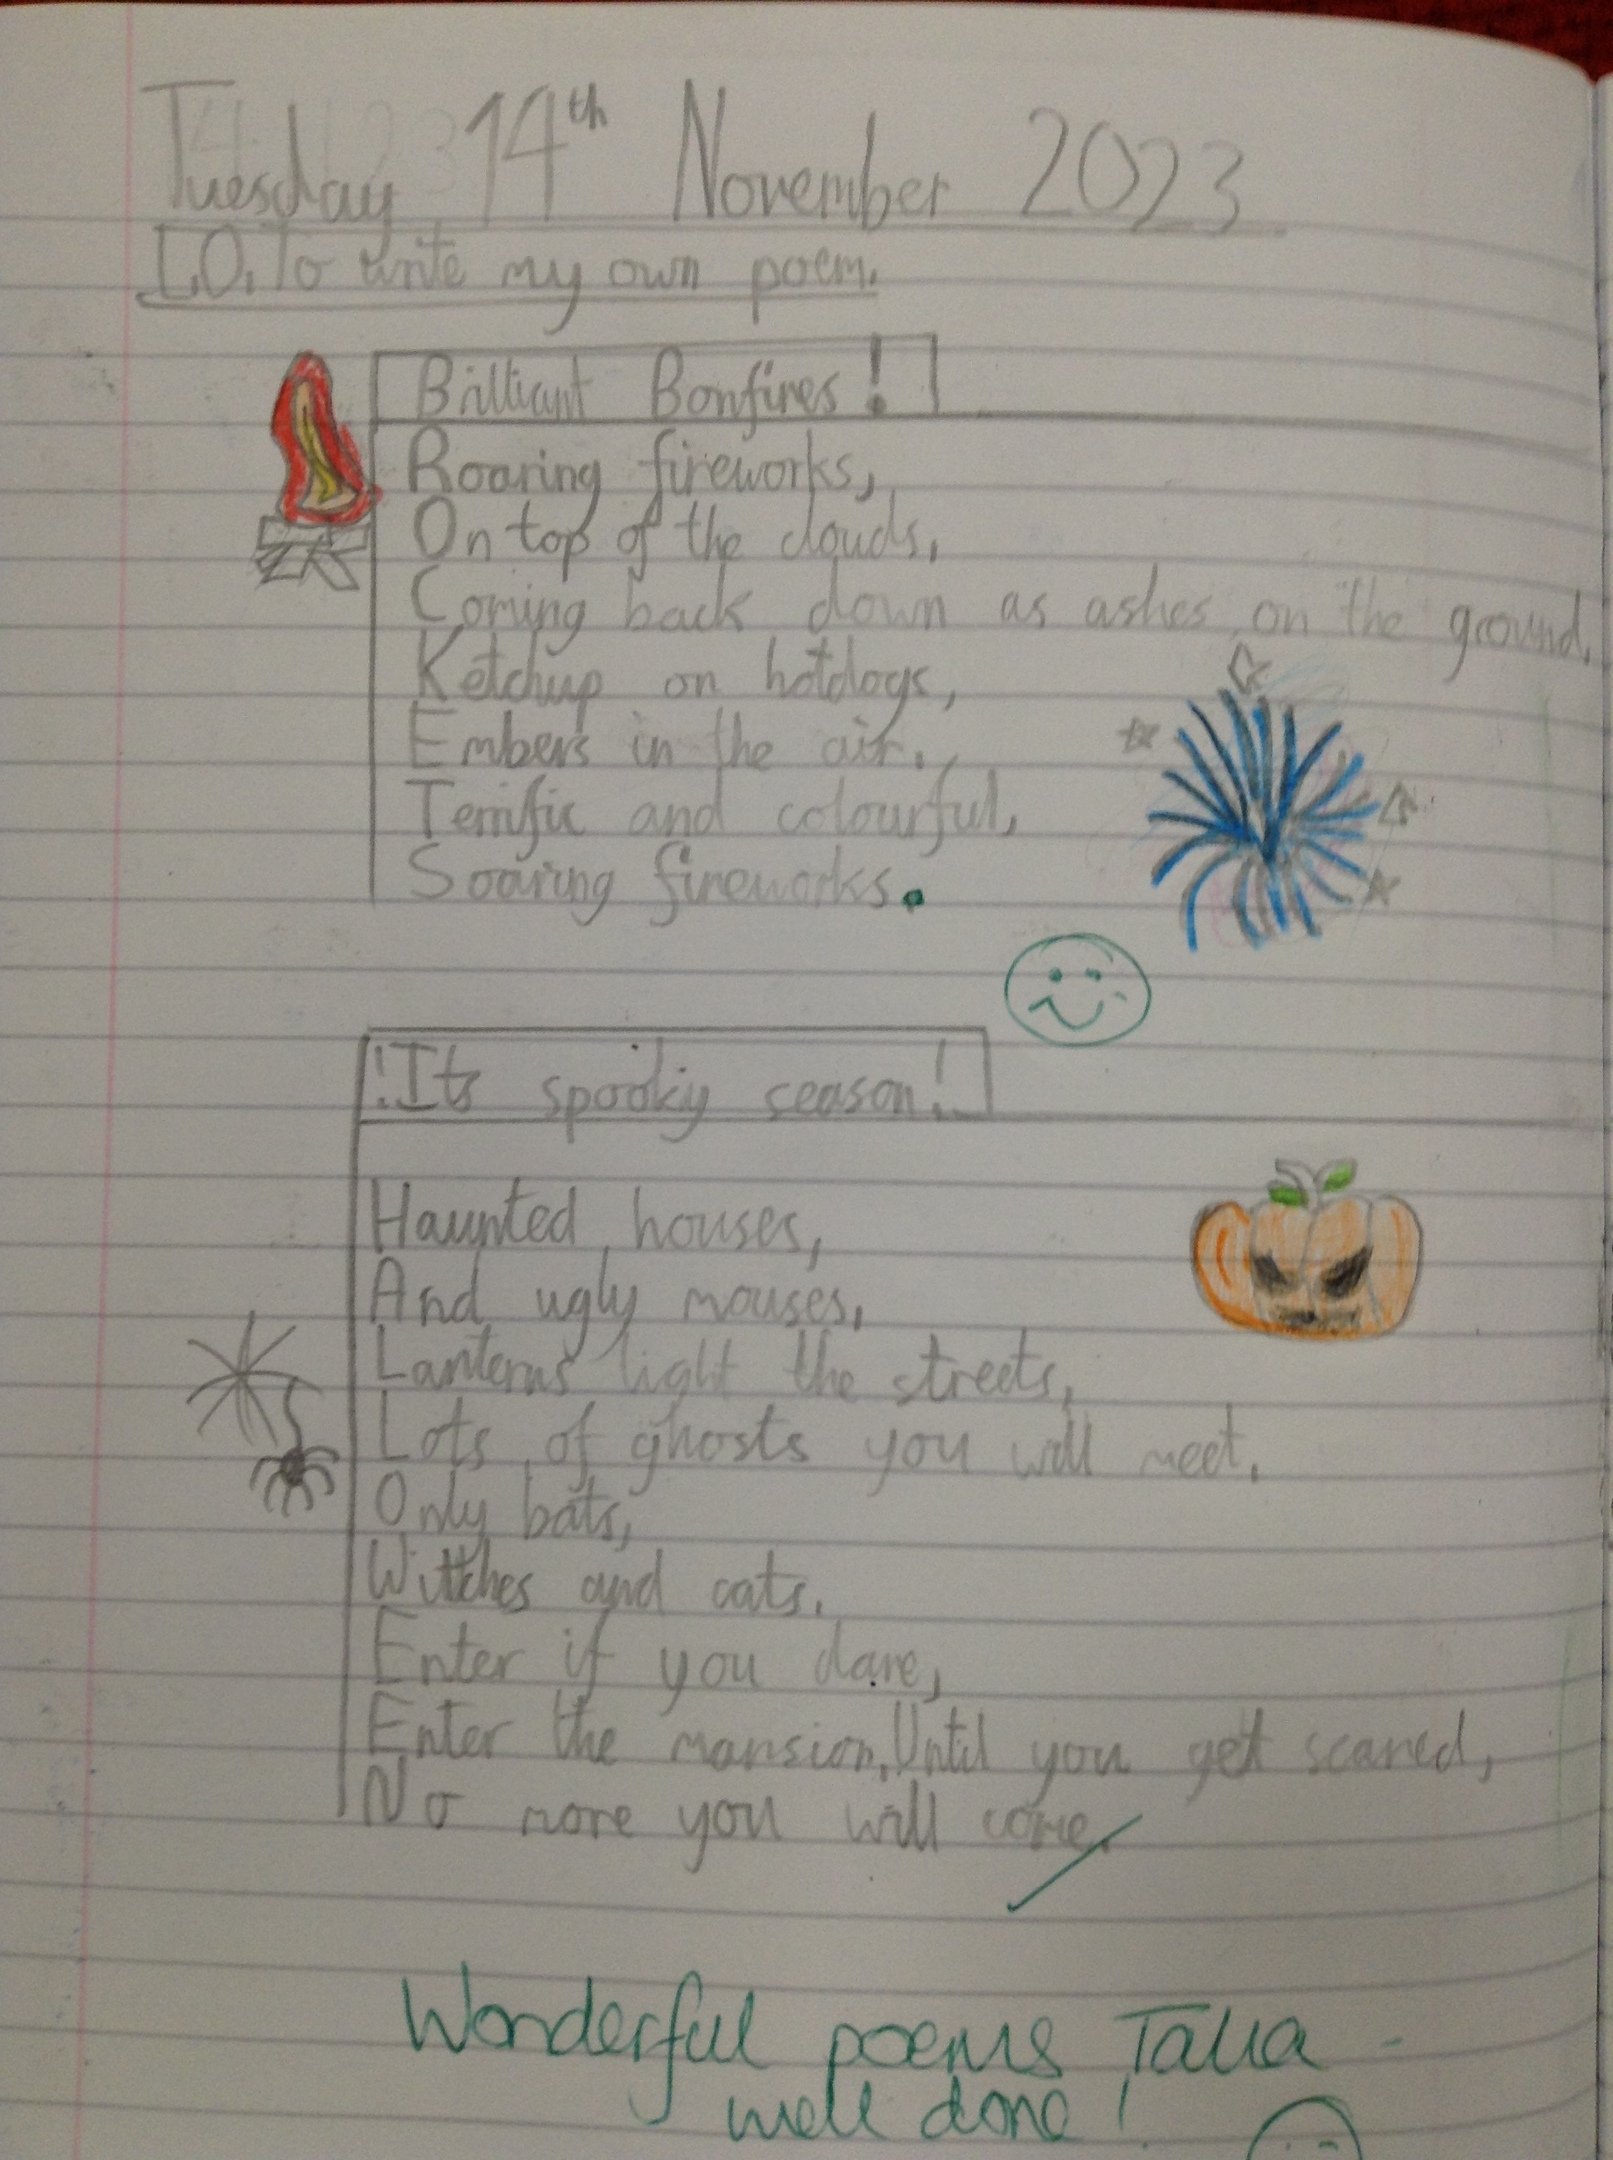 Tuesday 14th November 2023
L.O. To write my own poem.
Brilliant Bonfires!
Roaring fireworks,
On top of the clouds,
Coming back down as ashes on the ground.
Ketchup on hotdogs,
Embers in the air.
Terrific and colourful,
Soaring fireworks.
!Its spooky season!
Haunted houses,
And ugly mouses,
Lanterns light the streets,
Lots of ghosts you will meet.
Only bats,
Wittches and cats.
Enter if you dare,
Enter the mansion, Until you get scared,
No more you will come.
Wonderful poems Talia -
well done!